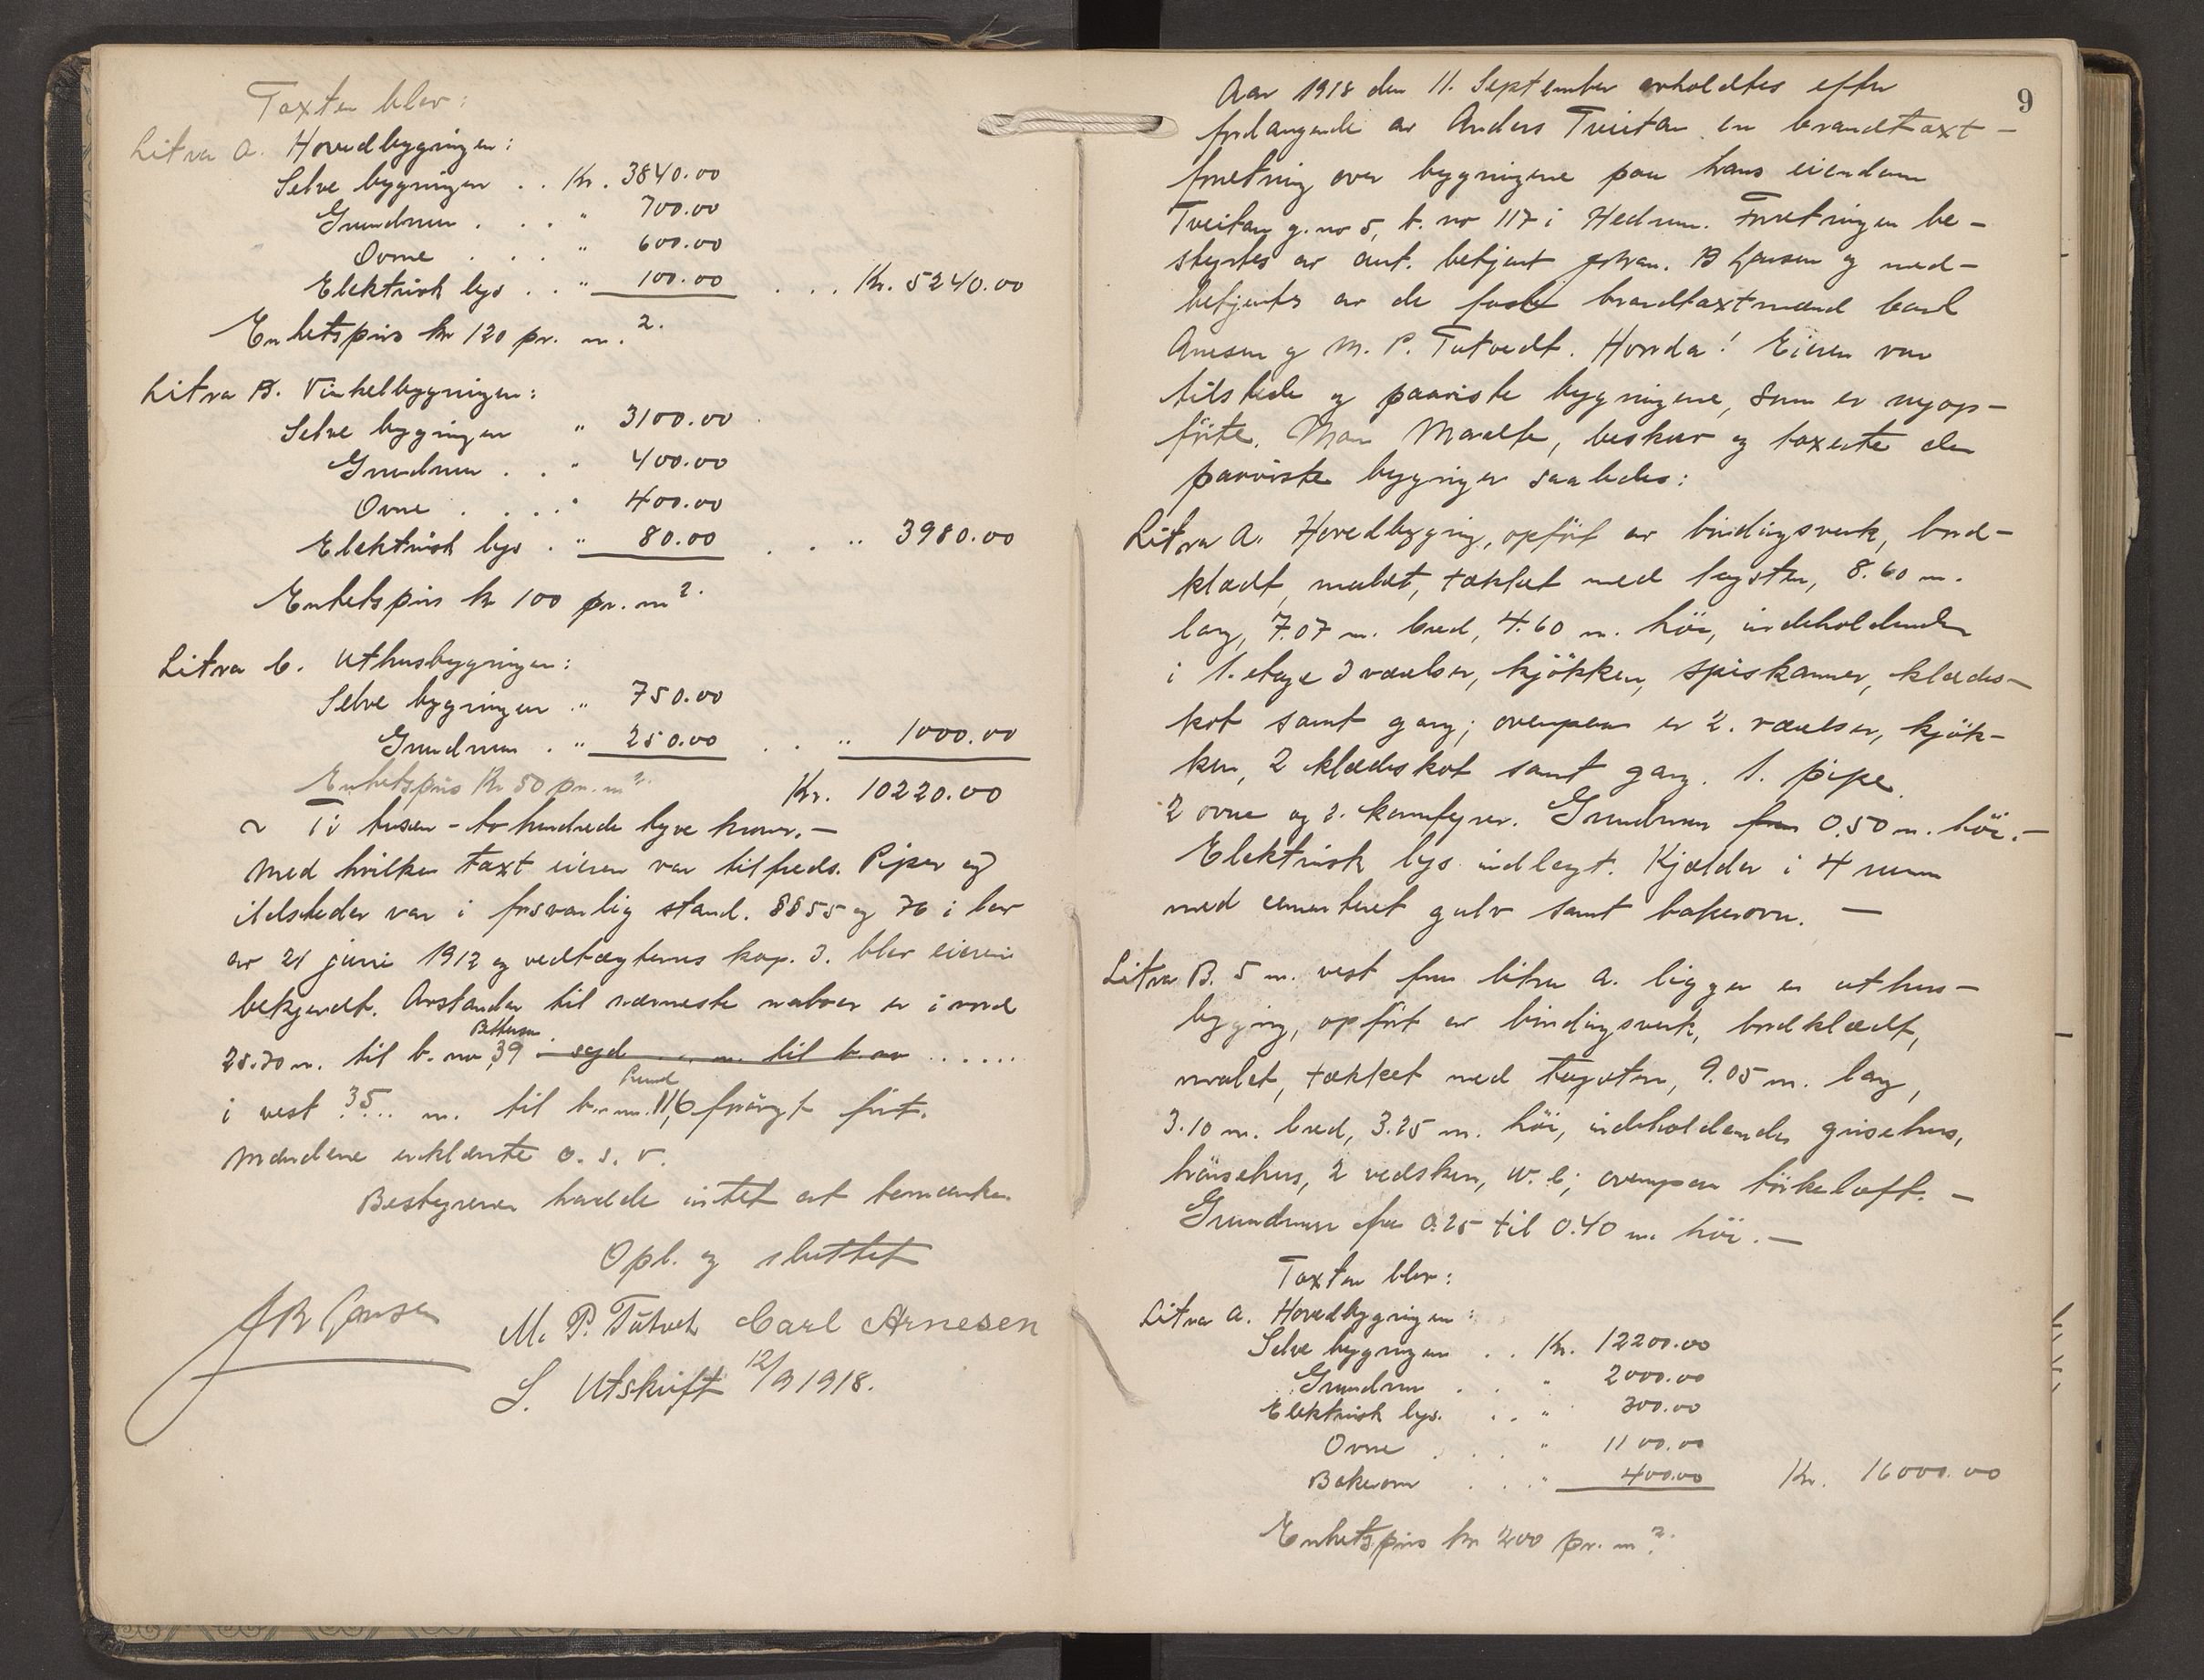 Taxten blev:
Litra A. Hovedbygningen:
Selve bygningen . . Kr. 3840.00
Grundmur . . . " 700.00
Ovne . . . " 600.00
Elektrisk lys . . " 100.00 . . . Kr. 5240.00
Enhetspris kr 120 pr. m.2.
Litra B. Vinkelbygningen:
Selve bygningen " 3100.00
Grundmur . . " 400.00
Ovne . . . . " 400.00
Elektrisk lys . " 80.00 . . " 3980.00
Enhetspris kr 100 pr. m2.
Litra C. Uthusbygningen:
Selve bygningen . " 750.00
Grundmur . " 250.00 . . " 1000.00
Enhetspris Kr 50 pr. m2. Kr. 10220.00
~ Ti tusen - to hundrede tyve kroner. —
Med hvilken taxt eieren var tilfreds. Piper og
ildsteder var i forsvarlig stand. §§ 55 og 76 i lov
av 21 juni 1912 og vedtægternes kap. 3. blev eieren
bekjendt. Avstanden til nærmeste naboer er i nord
Pettersen
28.70 m. til b. no 39 - syd . . . m. til b. no . . . . . .
Lund
i vest 35 . . m. til b. no. 116 forövrigt frit.
Mændene erklærte o. s. v.
Bestyreren hadde intet at bemærke
Opl. og sluttet
J B Jensen M. P. Tutvedt Carl Arnesen
S. Utskrift 12/9 1918.
9
Aar 1918 den 11. September avholdtes efter
forlangende av Anders Tveitan en brandtaxt-
forretning over bygningene paa hans eiendom
Tveitan g. no 5, b. no 117 i Hedrum. Forretningen be-
styrtes av aut. betjent Johan. B Jensen og med-
betjentes av de faste brandtaxtmænd Carl
Arnesen og M. P. Tutvedt. Hvorda! Eieren var
tilstede og paaviste bygningene, som er nyop-
förte. Man maalte, beskrev og taxerte de
paaviste bygninger saaledes:
Litra A. Hovedbygning, opfört av bindingsverk, bord-
klædt, malet, tækket med tagsten, 8.60 m.
lang, 7.07 m. bred, 4.60 m. höi, indeholdende
i 1. etage 3 værelser, kjökken, spiskammer, klædes-
kot samt gang; ovenpaa er 2. værelser, kjök-
ken, 2 klædeskot samt gang. 1. pipe.
2 ovne og 2. komfyrer. Grundmur fra 0.50 m. höi. —
Elektrisk lys indlagt. Kjælder i 4 rum
med cementert gulv samt bakerovn. —
Litra B. 5 m. vest fra litra A. ligger en uthus-
bygning, opfört av bindingsverk, bordklædt,
malet, tækket med tagsten, 9.05 m. lang,
3.10 m. bred, 3.25 m. höi, indeholdende grisehus,
hönsehus, 2 vedskur, W. C; ovenpaa törkeloft. —
Grundmur fra 0.25 til 0.40 m. höi. —
Taxten blev:
Litra A. Hovedbygningen:
Selve bygningen . . Kr. 12200.00
Grundmur . . " 2000.00
Elektrisk lys. . . " 300.00
Ovne . . . " 1100.00
Bakerovn . . . " 400.00 Kr. 16000.00
Enhetspris kr 200 pr. m2.